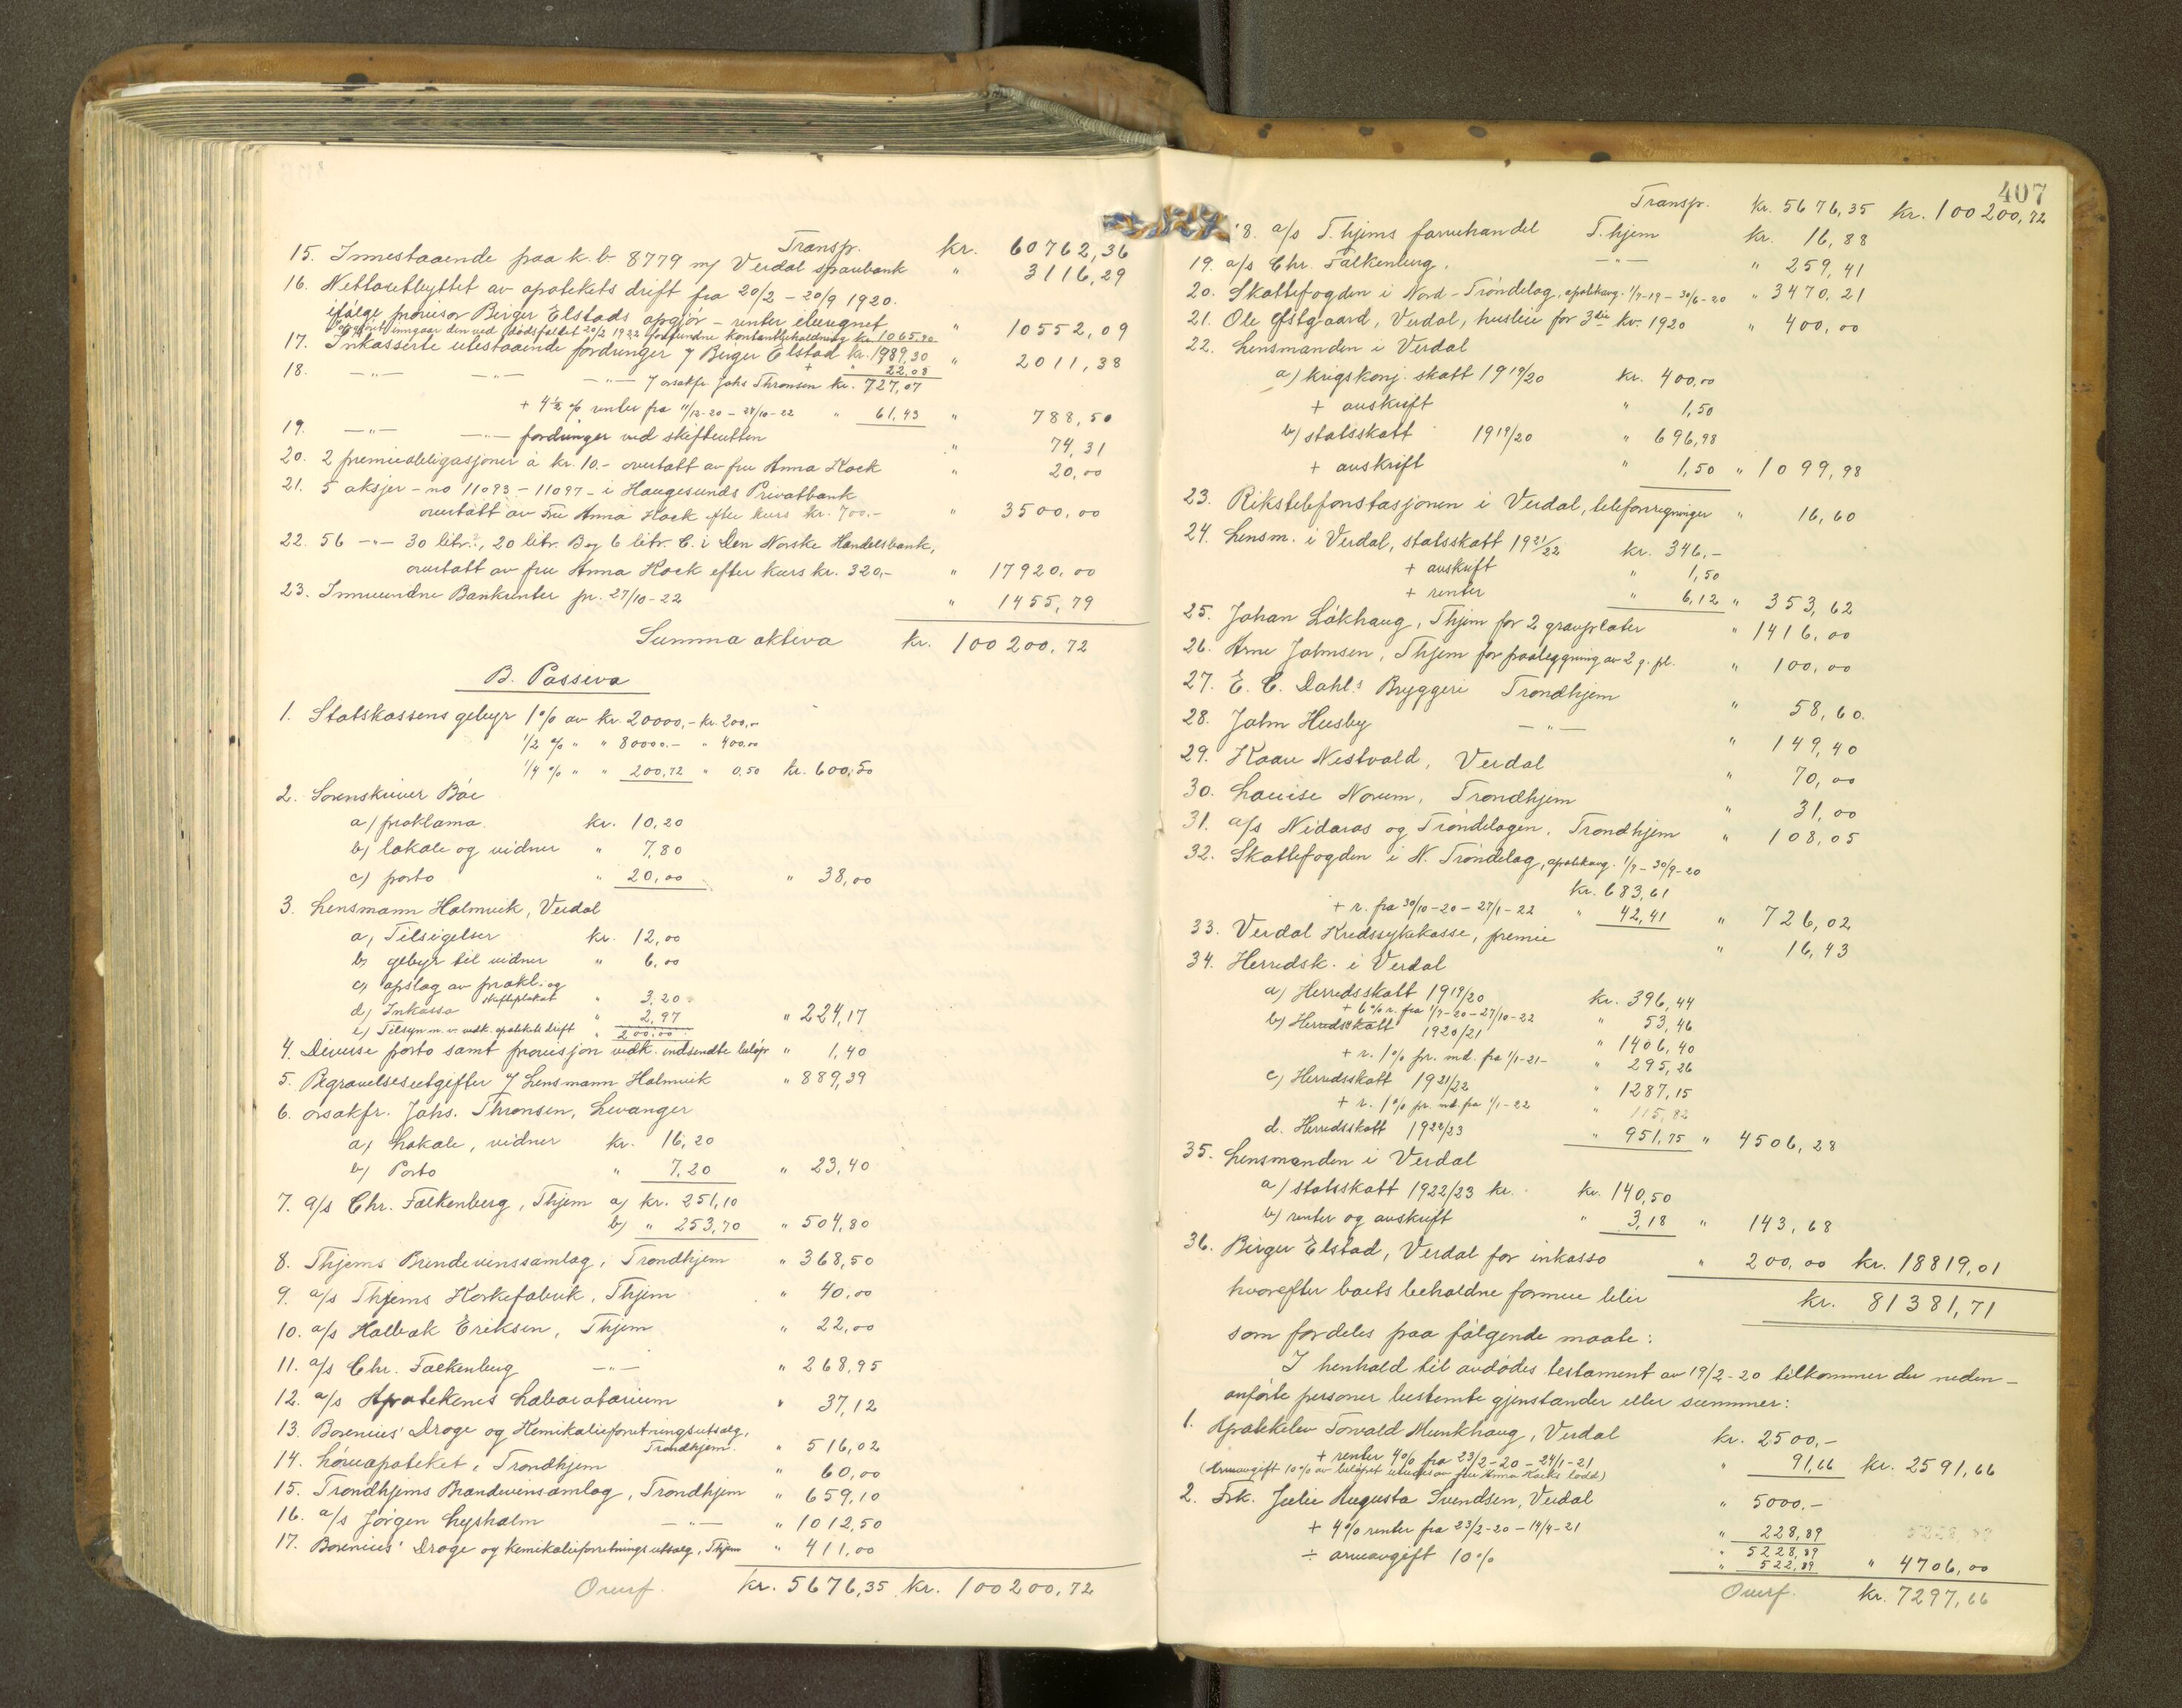 Transp. kr. 60762,36
15. Innestaaende paa k.b. 8779 m/ Verdal sparebank " 3116,29
16. Nettoutbyttet av apotekets drift fra 20/2 - 20/9 1920.
ifølge provisor Birger Elstads opgjør - renter iberegnet " 10552,09
I opgjøret inngaar den ved dødsfaldet 20/2 1922 forefundne kontantbeholdning kr. 1065,90
17. Inkasserte utestaaende fordringer v/ Birger Elstad kr. 1989,30
+ " 22,08 " 2011,38
18. -"- -"- -"- v/ orsakfr. Johs Thronsen kr. 727,07
+ 4½ % renter fra 11/12-20 - 28/10-22 " 61,43 " 788,50
19. -"- -"- fordringer ved skifteretten " 74,31
20. 2 premieobligasjoner à kr. 10.- overtatt av fru Anna Kock " 20,00
21. 5 aksjer - no 11093 - 11097 - i Haugesunds Privatbank
overtatt av Fru Anna Kock efter kurs kr. 700.- " 3500,00
22. 56 -"- 30 litr. , 20 litr. B og 6 litr. C. i Den Norske Handelsbank,
overtatt av fru Anna Kock efter kurs kr. 320,- " 17920,00
23. Innvundne Bankrenter pr. 27/10-22 " 1455,79
Summa aktiva kr. 100200,72
B. Passiva
1. Statskassens gebyr 1% av kr. 20000,- kr. 200,-
1/2 % " " 80000.- " 400.00
1/4 % " " 200,72 " 0,50 kr. 600,50
2. Sorenskriver Bøe
a) proklama. kr. 10,20
b) lokale og vidner " 7,80
c) porto " 20,00 " 38,00
3. Lensmann Holmvik, Verdal
a) Tilsigelser kr. 12,00
b) gebyr til vidner " 6,00
c) opslag av prokl. og
skifteplakat " 3,20
d) Inkasso " 2,97
e) Tilsyn m.v. vedk. apotekets drift " 200,00 " 224,17
4. Diverse porto samt provisjon vedk. indsendte beløp " 1,40
5. Begravelsesutgifter v/ Lensmann Holmvik " 889,39
6. orsakfr. Johs. Thronsen, Levanger
a) Lokale, vidner kr. 16,20
b) Porto " 7,20 " 23,40
7. a/s Chr. Falkenberg, Thjem a) kr. 251,10
b) " 253,70 " 504,80
8. Thjems Brendevinssamlag, Trondhjem " 368,50
9. a/s Thjems Korkefabrik, Thjem " 40,00
10. a/s Halbak Eriksen, Thjem " 22,00
11. a/s Chr. Falkenberg -"- " 268,95
12. a/s Apotekenes Laboratorium " 37,12
13. Borenius' Droge og Kemikalieforretningsutsalg,
Trondhjem. " 516,02
14. Løveapoteket, Trondhjem " 60,00
15. Trondhjems Brandevinsamlag, Trondhjem " 659,10
16. a/s Jørgen Lysholm -"- " 1012,50
17. Borenius' Droge og kemikalieforretningsutsalg, Thjem " 411,00
Overf. kr. 5676,35 kr. 100200,72
407
Transp. kr. 5676,35 kr. 100200,72
18. a/s T.hjems farvehandel T.hjem kr. 16,88
19. a/s Chr. Falkenberg. -"- " 259,41
20. Skattefogden i Nord-Trøndelag, apotekavg. 1/7-19 - 30/6-20 " 3470,21
21. Ole Østgaard, Verdal, husleie for 3die kv. 1920 " 400,00
22. Lensmanden i Verdal
a) krigskonj. skatt 1919/20 kr. 400,00
+ avskrift " 1,50
b) statsskatt 1919/20 " 696,98
+ avskrift " 1,50 " 1099,98
23. Rikstelefonstasjonen i Verdal, telefonregninger " 16,60
24. Lensm. i Verdal, statsskatt 1921/22 kr. 346,-
+ avskrift " 1,50
+ renter " 6,12 " 353,62
25. Johan Løkhaug, Thjem for 2 gravplater " 1416,00
26. Arne Johnsen, Thjem for paalegning av 2 g. pl. " 100,00
27. E. C. Dahls Bryggeri Trondhjem " 58,60.
28. John Husby -"- " 149,40
29. Kaare Nestvold, Verdal " 70,00
30. Louise Norum, Trondhjem " 31,00
31. a/s Nidaros og Trøndelagen, Trondhjem " 108,05
32. Skattefogden i N. Trøndelag, apotekavg. 1/7 - 30/9-20
kr. 683,61
+ r. fra 30/10-20 - 27/1-22 " 42,41 " 726,02
33. Verdal Kredssykekasse, premie " 16,43
34. Herredsk. i Verdal
a) Herredsskatt 1919/20 kr. 396,44
+ 6% r. fra 1/7-20 - 27/10-22 " 53,46
b) Herredsskatt 1920/21 " 1406,40
+ r. 1% pr. md. fra 1/1-21- " 295,26
c) Herredsskatt 1921/22 " 1287,15
+ r. 1% pr. md. fra 1/1-22 " 115,82
d. Herredsskatt 1922/23 " 951,75 " 4506,28
35. Lensmanden i Verdal
a) statsskatt 1922/23 kr. kr. 140,50
b) renter og avskrift " 3,18 " 143,68
36. Birger Elstad, Verdal for inkasso " 200,00 kr. 18819,01
hvorefter boets beholdne formue blir kr. 81381,71
som fordeles paa følgende maate:
I henhold til avdødes testament av 19/2-20 tilkommer de neden-
anførte personer bestemte gjenstander eller summer:
1. Apotekelev Torvald Munkhaug, Verdal kr. 2500,-
+ renter 4% fra 23/2-20 - 24/1-21 " 91,66 kr. 2591,66
(Arveavgift 10% av beløpet utredes av fru Anna Kocks lodd)
2. Frk. Julie Augusta Svendsen, Verdal " 5000.-
+ 4% renter fra 23/2-20 - 14/4-21 " 228,89
" 5228,89
÷ arveavgift 10% " 522,89 " 4706,00
Overf. kr. 7297,66